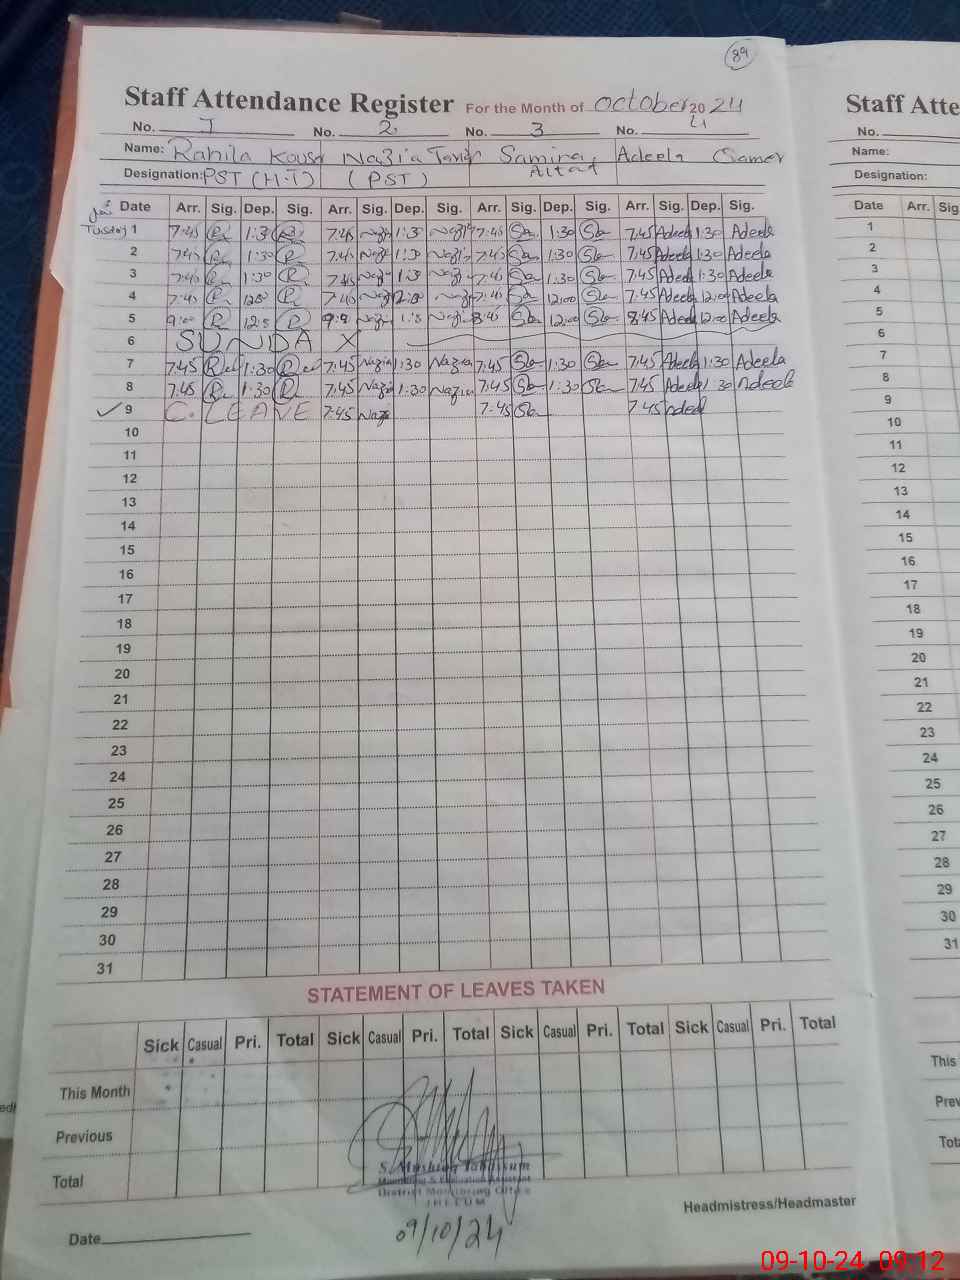 89
Staff Attendance Register For the Month of October 2024
No. 1 No. 2 No. 3 No. 4
Name: Rahila Kousar Nazia Tariq Samina Altaf Adeela
Designation: PST (H.T) (PST)
Date Arr. Sig. Dep. Sig. Arr. Sig. Dep. Sig. Arr. Sig. Dep. Sig. Arr. Sig. Dep. Sig.
Tusday 1 7:45 R 1:30 R 7:45 Nazi 1:30 Nazi 7:45 Sa 1:30 Sa 7:45 Adeela 1:30 Adeela
2 7:45 R 1:30 R 7:45 Nazi 1:30 Nazi 7:45 Sa 1:30 Sa 7:45 Adeela 1:30 Adeela
3 7:45 R 1:30 R 7:45 Nazi 1:30 Nazi 7:45 Sa 1:30 Sa 7:45 Adeela 1:30 Adeela
4 7:45 R 12:00 R 7:45 Nazi 12:00 Nazi 7:45 Sa 12:00 Sa 7:45 Adeela 12:00 Adeela
5 R R Nazi Nazi 8:45 Sa 12:00 Sa 8:45 Adeela 12:00 Adeela
6 SUNDA X
7 7:45 R 1:30 R 7:45 Nazia 1:30 Nazia 7:45 Sa 1:30 Sa 7:45 Adeela 1:30 Adeela
8 7:45 R 1:30 R 7:45 Nazia 1:30 Nazia 7:45 Sa 1:30 Sa 7:45 Adeela 1:30 Adeela
✓ 9 C. LEAVE 7:45 Nazi 7:45 Sa 7:45 Adeel
10
11
12
13
14
15
16
17
18
19
20
21
22
23
24
25
26
27
28
29
30
31
STATEMENT OF LEAVES TAKEN
Sick Casual Pri. Total Sick Casual Pri. Total Sick Casual Pri. Total Sick Casual Pri. Total
This Month
Previous
Total
S. Mushtaq Tabassum
Monitoring & Evaluation Assistant
District Monitoring Office
JHELUM
09/10/24
Headmistress/Headmaster
Date
Staff Atte
No.
Name:
Designation:
Date Arr. Sig
1
2
3
4
5
6
7
8
9
10
11
12
13
14
15
16
17
18
19
20
21
22
23
24
25
26
27
28
29
30
31
This
Prev
Tota
09-10-24 09:12